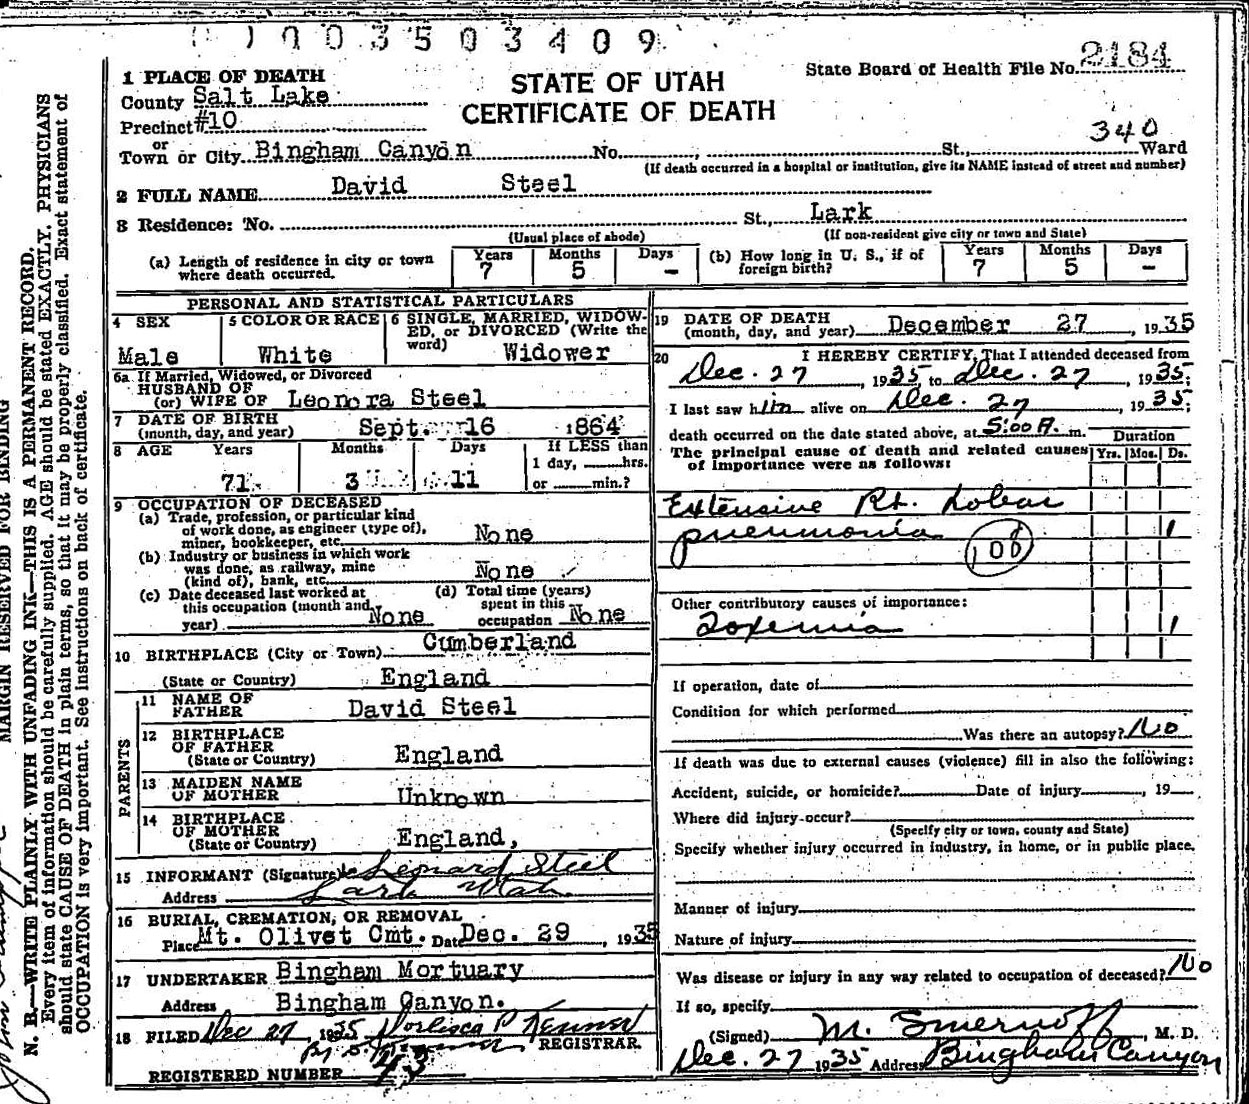 0 0 3 5 0 3 4 0 9
2184
State Board of Health File No.
STATE OF UTAH
CERTIFICATE OF DEATH
1 PLACE OF DEATH
County Salt Lake
Precinct #10
340
or
Town or City Bingham Canyon No. , St., Ward
(If death occurred in a hospital or institution, give its NAME instead of street and number)
2 FULL NAME David Steel
3 Residence: No. St., Lark
(Usual place of abode) (If non-resident give city or town and State)
(a) Length of residence in city or town where death occurred. Years 7 Months 5 Days –
(b) How long in U. S., if of foreign birth? Years 7 Months 5 Days –
PERSONAL AND STATISTICAL PARTICULARS
4 SEX Male
5 COLOR OR RACE White
6 SINGLE, MARRIED, WIDOW-
ED, or DIVORCED (Write the
word) Widower
6a If Married, Widowed, or Divorced
HUSBAND OF
(or) WIFE OF Leonora Steel
7 DATE OF BIRTH
(month, day, and year) Sept. 16 1864
8 AGE Years Months Days If LESS than
71 3 11 1 day, hrs.
or min.?
9 OCCUPATION OF DECEASED
(a) Trade, profession, or particular kind
of work done, as engineer (type of),
miner, bookkeeper, etc. None
(b) Industry or business in which work
was done, as railway, mine
(kind of), bank, etc. None
(c) Date deceased last worked at
this occupation (month and
year) None
(d) Total time (years)
spent in this
occupation None
10 BIRTHPLACE (City or Town) Cumberland
(State or Country) England
PARENTS
11 NAME OF
FATHER David Steel
12 BIRTHPLACE
OF FATHER
(State or Country) England
13 MAIDEN NAME
OF MOTHER Unknown
14 BIRTHPLACE
OF MOTHER
(State or Country) England,
15 INFORMANT (Signature) Leonard Steel
Address Lark Utah
16 BURIAL, CREMATION, OR REMOVAL
Place Mt. Olivet Cmt. Date Dec. 29, 1935
17 UNDERTAKER Bingham Mortuary
Address Bingham Canyon.
18 FILED Dec 27 1935
REGISTRAR.
REGISTERED NUMBER 43
19 DATE OF DEATH
(month, day, and year) December 27, 1935
20 I HEREBY CERTIFY, That I attended deceased from
Dec. 27, 1935 to Dec. 27, 1935;
I last saw him alive on Dec. 27, 1935;
death occurred on the date stated above, at 5:00 A. m.
The principal cause of death and related causes
of importance were as follows:
Duration
Yrs. Mos. Ds.
Extensive Rt. Lobar
pneumonia 1
108
Other contributory causes of importance:
Toxemia 1
If operation, date of
Condition for which performed
Was there an autopsy? No
If death was due to external causes (violence) fill in also the following:
Accident, suicide, or homicide? Date of injury , 19
Where did injury occur?
(Specify city or town, county and State)
Specify whether injury occurred in industry, in home, or in public place.
Manner of injury
Nature of injury
Was disease or injury in any way related to occupation of deceased? No
If so, specify
(Signed) M. Smernoff, M. D.
Dec. 27 1935 Address Bingham Canyon
MARGIN RESERVED FOR BINDING
N. B.—WRITE PLAINLY WITH UNFADING INK—THIS IS A PERMANENT RECORD.
Every item of information should be carefully supplied. AGE should be stated EXACTLY. PHYSICIANS
should state CAUSE OF DEATH in plain terms, so that it may be properly classified. Exact statement of
OCCUPATION is very important. See instructions on back of certificate.